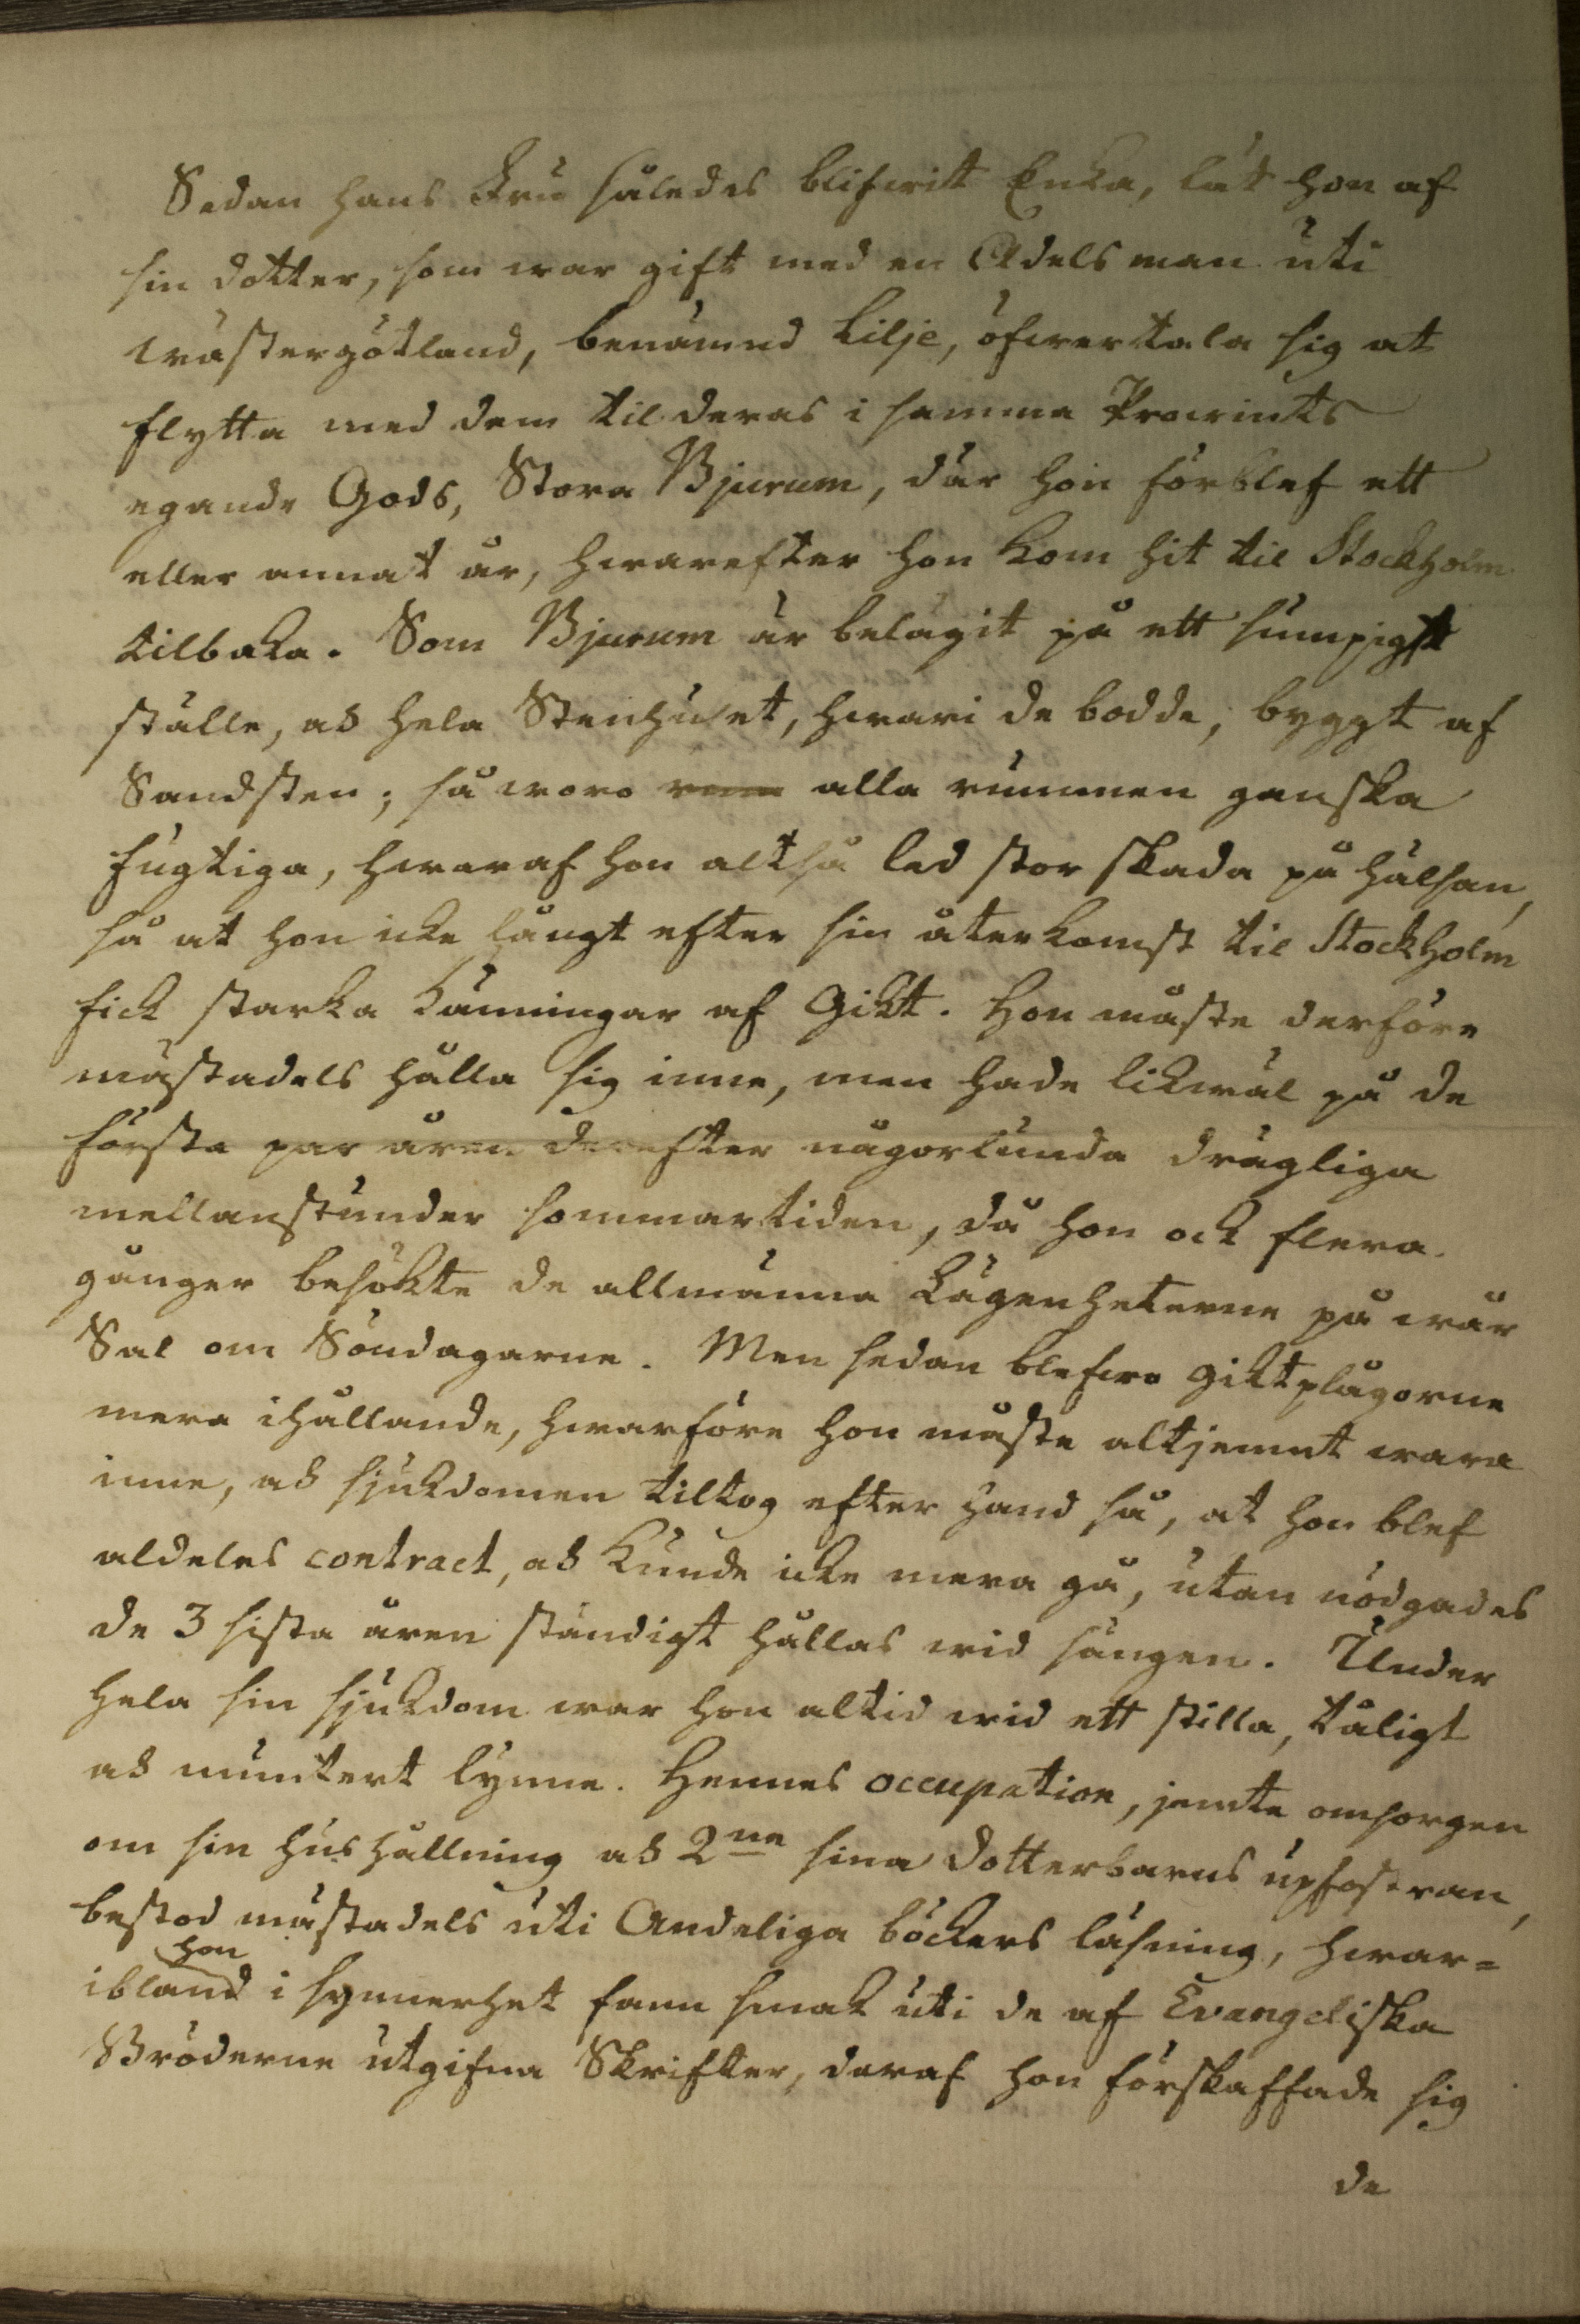 Sedan hans Fru således blifwit Enka, lät hon af
sin dotter, som war gift med en Adelsman uti
Wästergötland, benämnd Lilje, öfwertala sig at
flytta med dem til deras i samma Provints
egande Gods, Stora Bjurum, där hon förblef ett
eller annat år, hwarefter hon kom hit til Stockholm
tilbaka. Som Bjurum är belägit på ett sumpigt
ställe, och hela Stenhuset, hwari de bodde, byggt af
Sandsten; så woro rum alla rummen ganska
fugtiga, hwaraf hon altså led stor skada på hälsan,
så at hon icke långt efter sin återkomst til Stockholm
fick starka känningar af Gikt. Hon måste derföre
mästadels hålla sig inne, men hade likwäl på de
första par åren derefter någorlunda drägliga
mellanstunder sommartiden, då hon ock flera
gånger besökte de allmänna Lägenheterne på wår
Sal om Söndagarne. Men sedan blefwo giktplågorne
mera ihållande, hwarföre hon måste altjemnt wara
inne, och sjukdomen tiltog efter hand så, at hon blef
aldeles contract, och kunde icke mera gå, utan nödgades
de 3 sista åren ständigt hållas wid sängen. Under
hela sin sjukdom war hon altid wid ett stilla, tåligt
och muntert lynne. Hennes occupation, jemte omsorgen
om sin hushållning och 2ne sina Dotterbarns upfostran,
bestod mästadels uti Andeliga böckers läsning, hwar=
hon
ibland i synnerhet fann smak uti de af Evangeliska
Bröderne utgifna Skrifter, deraf hon förskaffade sig
de